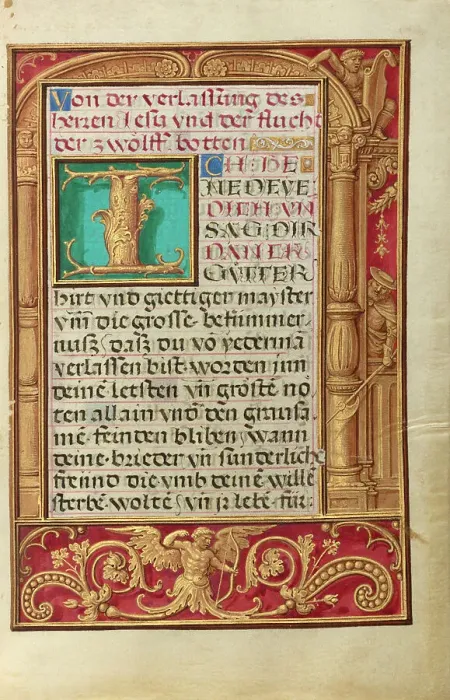 Von der verlassŭng des
herren Jesu vnd der flucht
der zwölff botten
ICH BE
NEDEYE
DICH VN̄
SAG DIR
DANCK
GVTTER
hirt vnd giettiger mayster
vm̄ die grosse bekümmer
nusz dasz du vō yedermā
verlassen bist worden jnn
deinē letsten vn̄ gröstē no
ten allain vnd den grausa
mē feinden bliben wann
deine brieder vn̄ sunderliche
freund die vmb deinē willē
sterbē woltē vn̄ jr lebē für